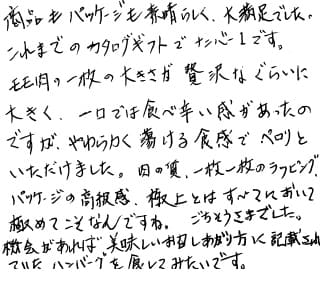 商品もパッケージも素晴らしく、大満足でした。
これまでのカタログギフトでナンバー1です。
モモ肉の一枚の大きさが贅沢なぐらいに
大きく、一口では食べ辛い感があったの
ですが、やわらかく蕩ける食感でペロリと
いただけました。肉の質、一枚一枚のラッピング、
パッケージの高級感、極上とはすべてにおいて
極めてこそなんですね。ごちそうさまでした。
機会があれば、美味しいお召しあがり方に記載され
ていたハンバーグを食してみたいです。